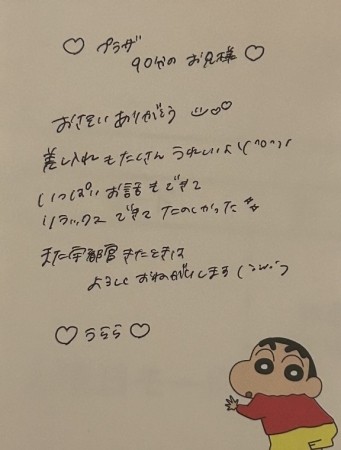 ♡ プラザ
90分の お兄様 ♡
おさそい ありがとう
差し入れ も たくさん うれしいよ!(^o^)
いっぱい お話 も できて
リラックス できて たのしかった
また宇都宮 きたときは
よろしく おねがいします(^ω^)
♡ うらら ♡